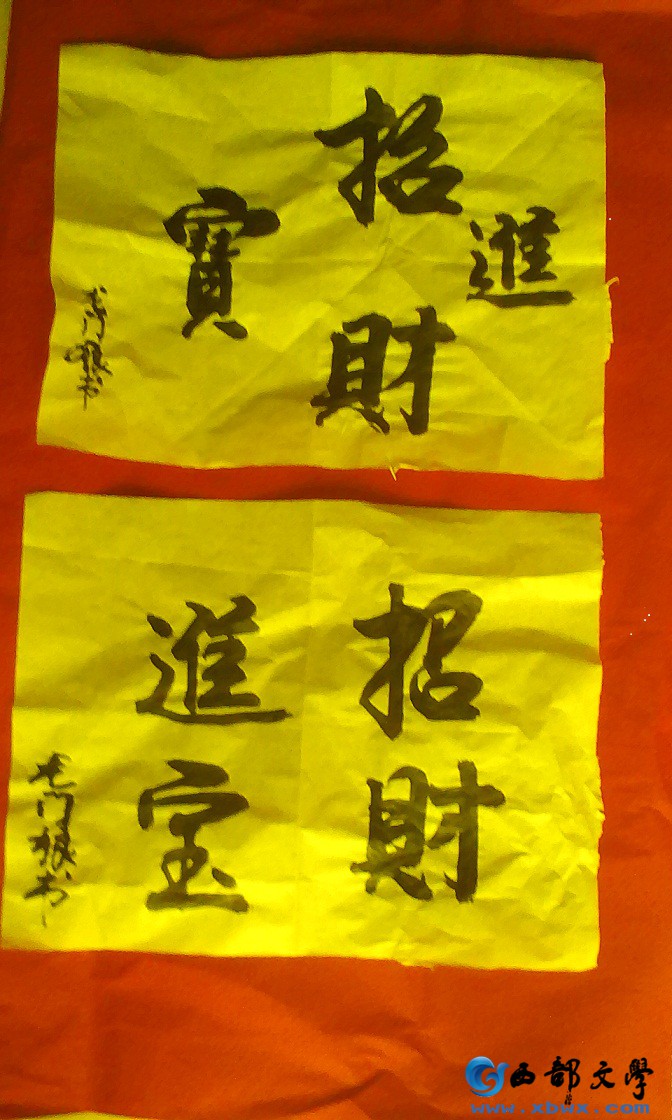 招財
進
寶
招財
進宝
西部文學
www.xbwx.com